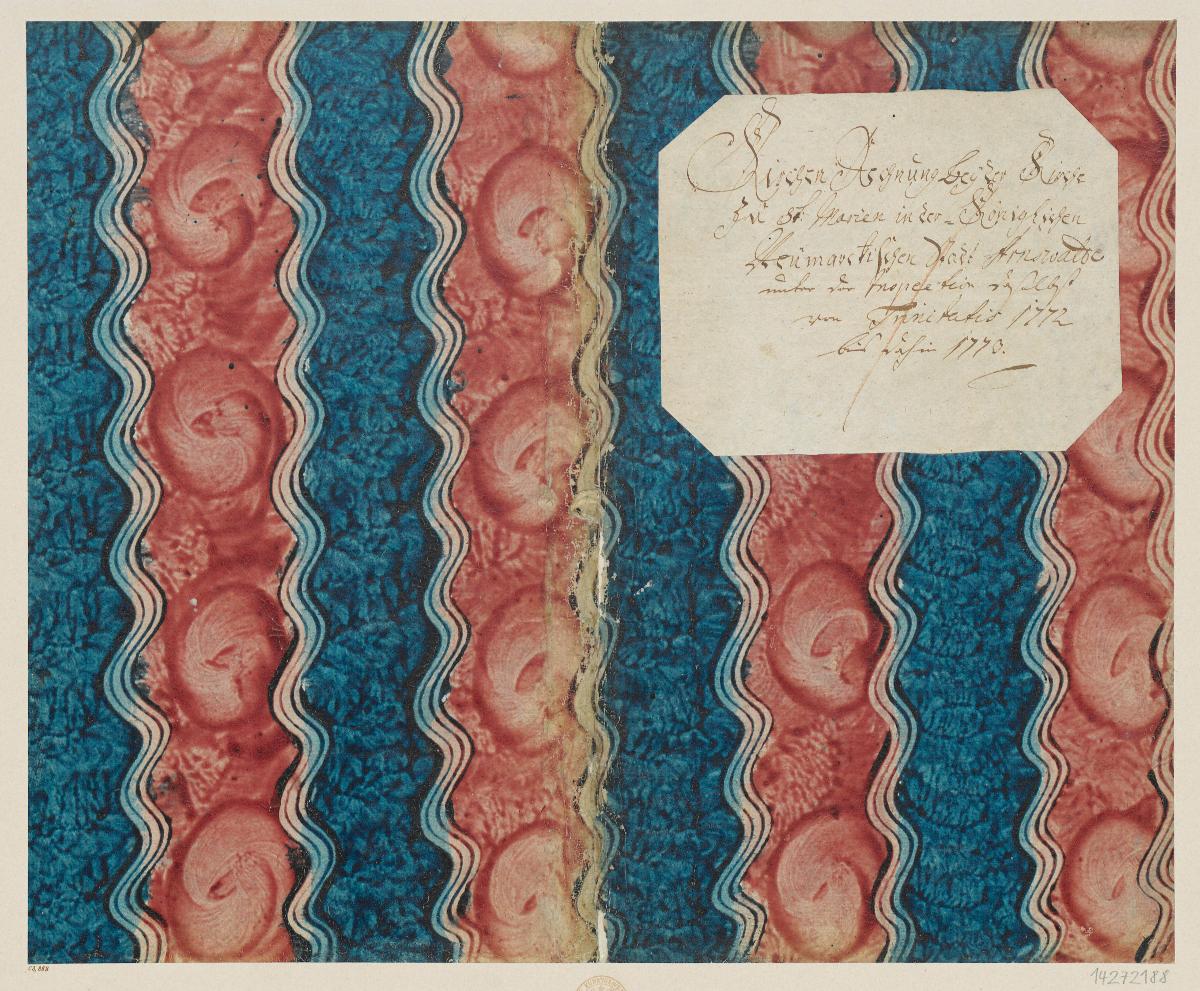 Kirchen Rechnung bey der Kirche
zu St. Marien in der Königlichen
Neümarckischen Stadt Arnswalde
unter der Inspection daselbst
von Trinitatis 1772
bis dahin 1773.
14272188